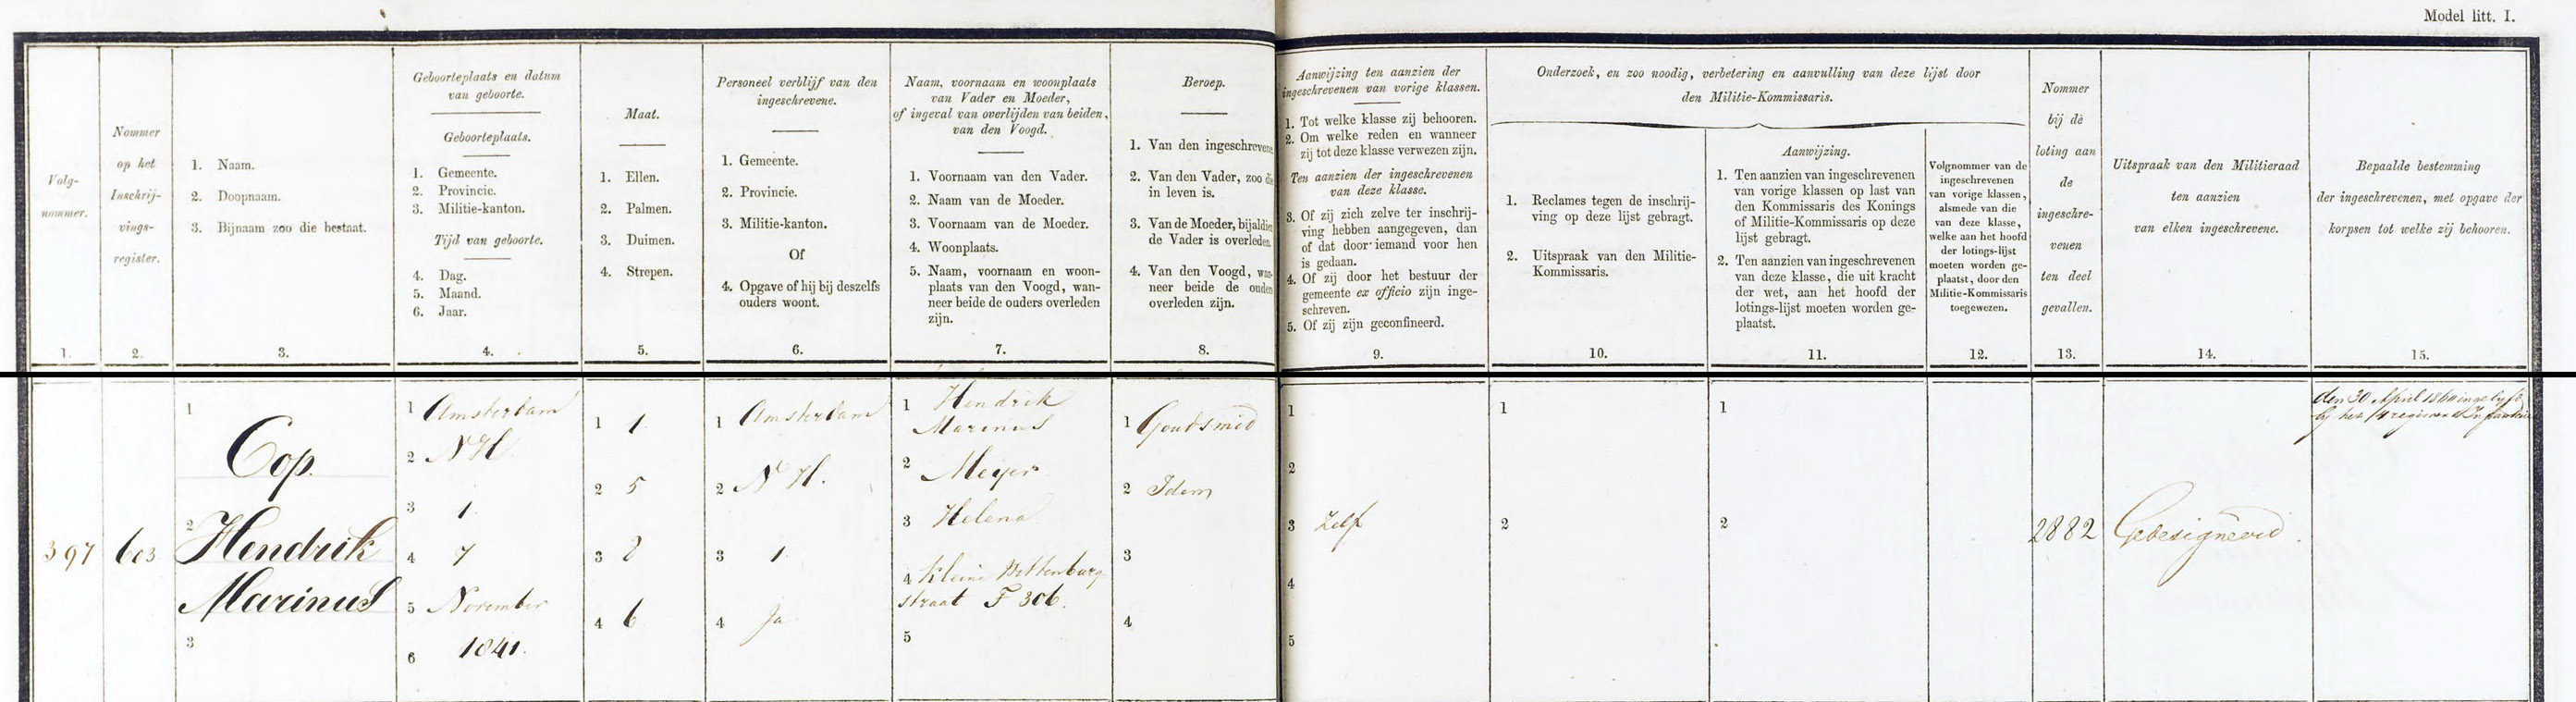 Model litt. I.
Volg-
nommer.
1.
Nommer
op het
Inschrij-
vings-
register.
2.
1. Naam.
2. Doopnaam.
3. Bijnaam zoo die bestaat.
3.
Geboorteplaats en datum
van geboorte.
Geboorteplaats.
1. Gemeente.
2. Provincie.
3. Militie-kanton.
Tijd van geboorte.
4. Dag.
5. Maand.
6. Jaar.
4.
Maat.
1. Ellen.
2. Palmen.
3. Duimen.
4. Strepen.
5.
Personeel verblijf van den
ingeschrevene.
1. Gemeente.
2. Provincie.
3. Militie-kanton.
Of
4. Opgave of hij bij deszelfs
ouders woont.
6.
Naam, voornaam en woonplaats
van Vader en Moeder,
of ingeval van overlijden van beiden,
van den Voogd.
1. Voornaam van den Vader.
2. Naam van de Moeder.
3. Voornaam van de Moeder.
4. Woonplaats.
5. Naam, voornaam en woon-
plaats van den Voogd, wan-
neer beide de ouders overleden
zijn.
7.
Beroep.
1. Van den ingeschrevene
2. Van den Vader, zoo die
in leven is.
3. Van de Moeder, bijaldien
de Vader is overleden.
4. Van den Voogd, wan-
neer beide de ouders
overleden zijn.
8.
Aanwijzing ten aanzien der
ingeschrevenen van vorige klassen.
1. Tot welke klasse zij behooren.
2. Om welke reden en wanneer
zij tot deze klasse verwezen zijn.
Ten aanzien der ingeschrevenen
van deze klasse.
3. Of zij zich zelve ter inschrij-
ving hebben aangegeven, dan
of dat door iemand voor hen
is gedaan.
4. Of zij door het bestuur der
gemeente ex officio zijn inge-
schreven.
5. Of zij zijn geconfineerd.
9.
Onderzoek, en zoo noodig, verbetering en aanvulling van deze lijst door
den Militie-Kommissaris.
1. Reclames tegen de inschrij-
ving op deze lijst gebragt.
2. Uitspraak van den Militie-
Kommissaris.
10.
Aanwijzing.
1. Ten aanzien van ingeschrevenen
van vorige klassen op last van
den Kommissaris des Konings
of Militie-Kommissaris op deze
lijst gebragt.
2. Ten aanzien van ingeschrevenen
van deze klasse, die uit kracht
der wet, aan het hoofd der
lotings-lijst moeten worden ge-
plaatst.
11.
Volgnommer van de
ingeschrevenen
van vorige klassen,
alsmede van die
van deze klasse,
welke aan het hoofd
der lotings-lijst
moeten worden ge-
plaatst, door den
Militie-Kommissaris
toegewezen.
12.
Nommer
bij de
loting aan
de
ingeschre-
venen
ten deel
gevallen.
13.
Uitspraak van den Militieraad
ten aanzien
van elken ingeschrevene.
14.
Bepaalde bestemming
der ingeschrevenen, met opgave der
korpsen tot welke zij behooren.
15.
397
603
1
Cop.
2 Hendrik
Marinus
3
1 Amsterdam
2 NH
3 1
4 7
5 November
6 1841.
1 1
2 5
3 8
4 6
1 Amsterdam
2 N H.
3 1
4 Ja
1 Hendrik
Marinus
2 Meijer
3 Helena
4 Kleine
straat F 306.
5
1 Goudsmid
2 Idem
3
4
1
2
3 Zelf
4
5
1
2
1
2
2882
Gedesigneerd.
den 30 April 186 ingelyfd
by het regiment Infanterie